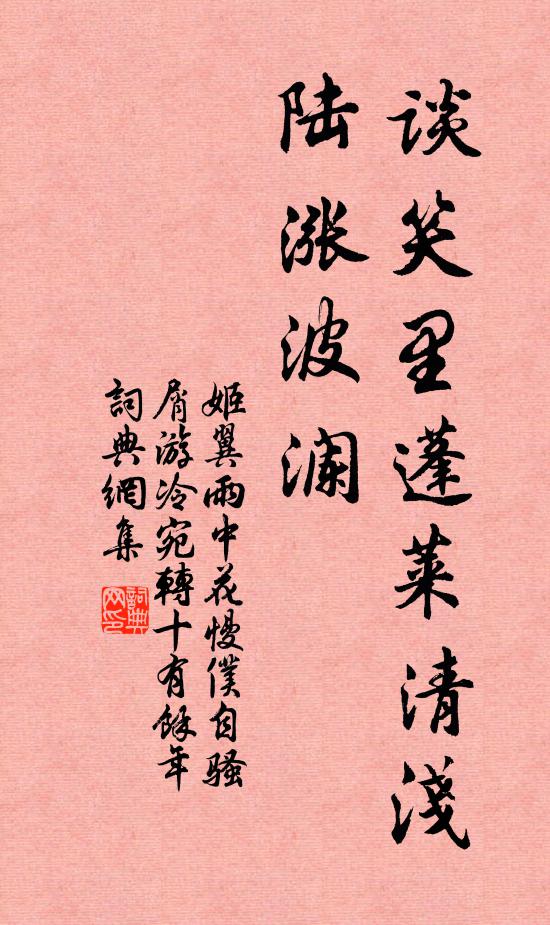 谈笑里蓬莱清淺
陆涨波澜
姬翼雨中花慢僕自騷
屑游冷宛轉十有餘年
詞典網集
詞典
网印